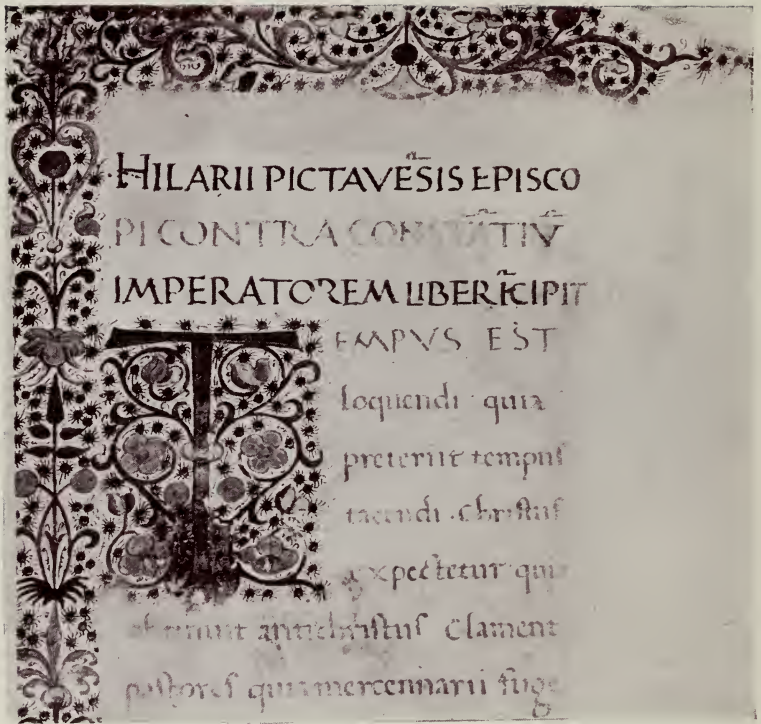 HILARII PICTAVẼSIS EPISCO
PI CONTRA CONSTÃTIV̄
IMPERATOREM LIBER ĨCIPIT
TEMPVS EST
loquendi quia
preteriit tempus
tacendi. Christus
expectetur quia
obtinuit antichristus Clament
pastores quia mercennarii fuge